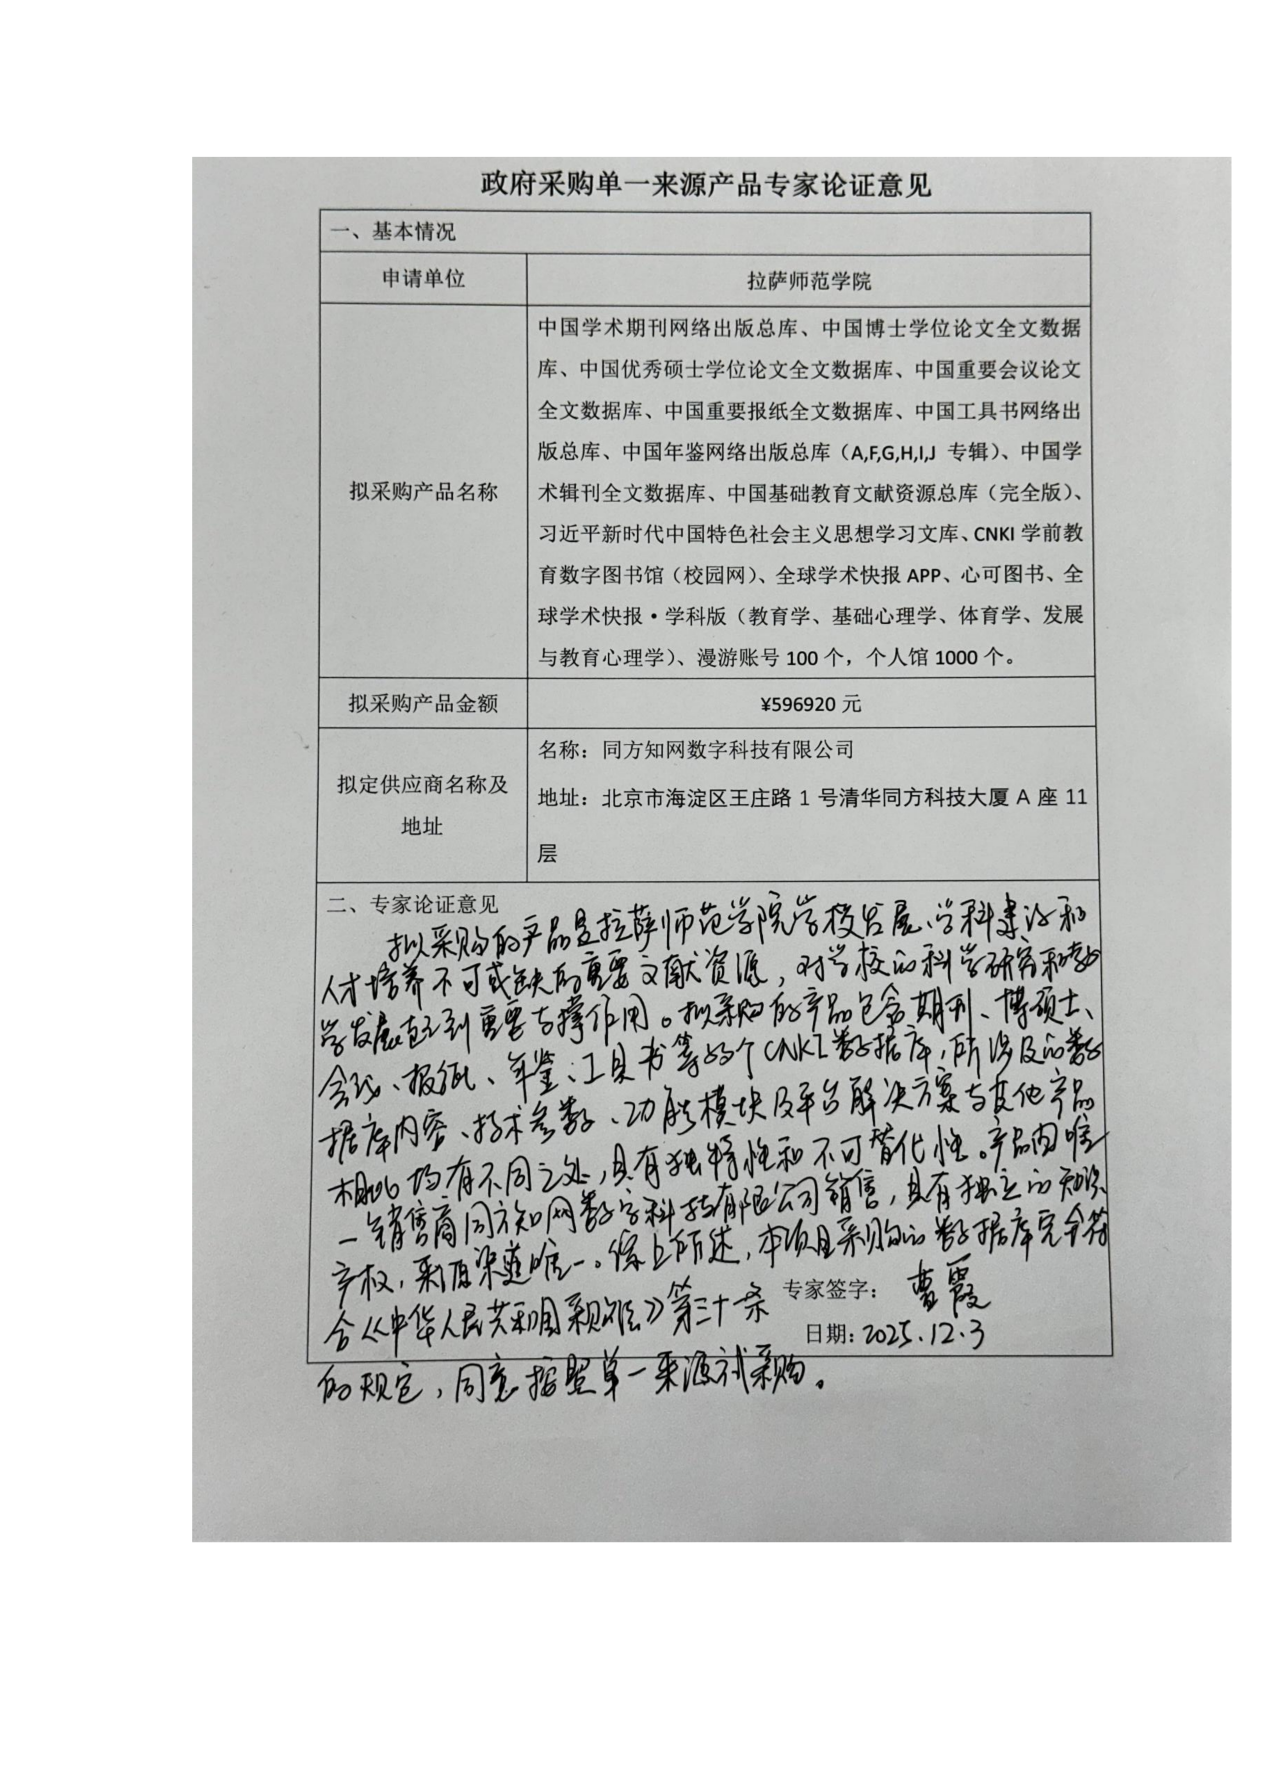 政府采购单一来源产品专家论证意见
一、基本情况
申请单位
拉萨师范学院
拟采购产品名称
中国学术期刊网络出版总库、中国博士学位论文全文数据
库、中国优秀硕士学位论文全文数据库、中国重要会议论文
全文数据库、中国重要报纸全文数据库、中国工具书网络出
版总库、中国年鉴网络出版总库（A,F,G,H,I,J 专辑）、中国学
术辑刊全文数据库、中国基础教育文献资源总库（完全版）、
习近平新时代中国特色社会主义思想学习文库、CNKI 学前教
育数字图书馆（校园网）、全球学术快报 APP、心可图书、全
球学术快报•学科版（教育学、基础心理学、体育学、发展
与教育心理学）、漫游账号 100 个，个人馆 1000 个。
拟采购产品金额
¥596920 元
拟定供应商名称及
地址
名称：同方知网数字科技有限公司
地址：北京市海淀区王庄路 1 号清华同方科技大厦 A 座 11
层
二、专家论证意见
拟采购的产品是拉萨师范学院学校发展、学科建设和
人才培养不可或缺的重要文献资源，对学校的科学研究和教
学发展起到重要支撑作用。拟采购的产品包含期刊、博硕士、
会议、报纸、年鉴、工具书等多个CNKI数据库，所涉及的数
据库内容、技术参数、功能模块及平台解决方案与其他产品
相比均有不同之处，具有独特性和不可替代性。产品由唯
一销售商同方知网数字科技有限公司销售，具有独立的知识
产权，来源渠道唯一。综上所述，本项目采购的数据库完全符
合《中华人民共和国采购法》第三十一条
的规定，同意按照单一来源式采购。
专家签字： 曹霞
日期：2025.12.3